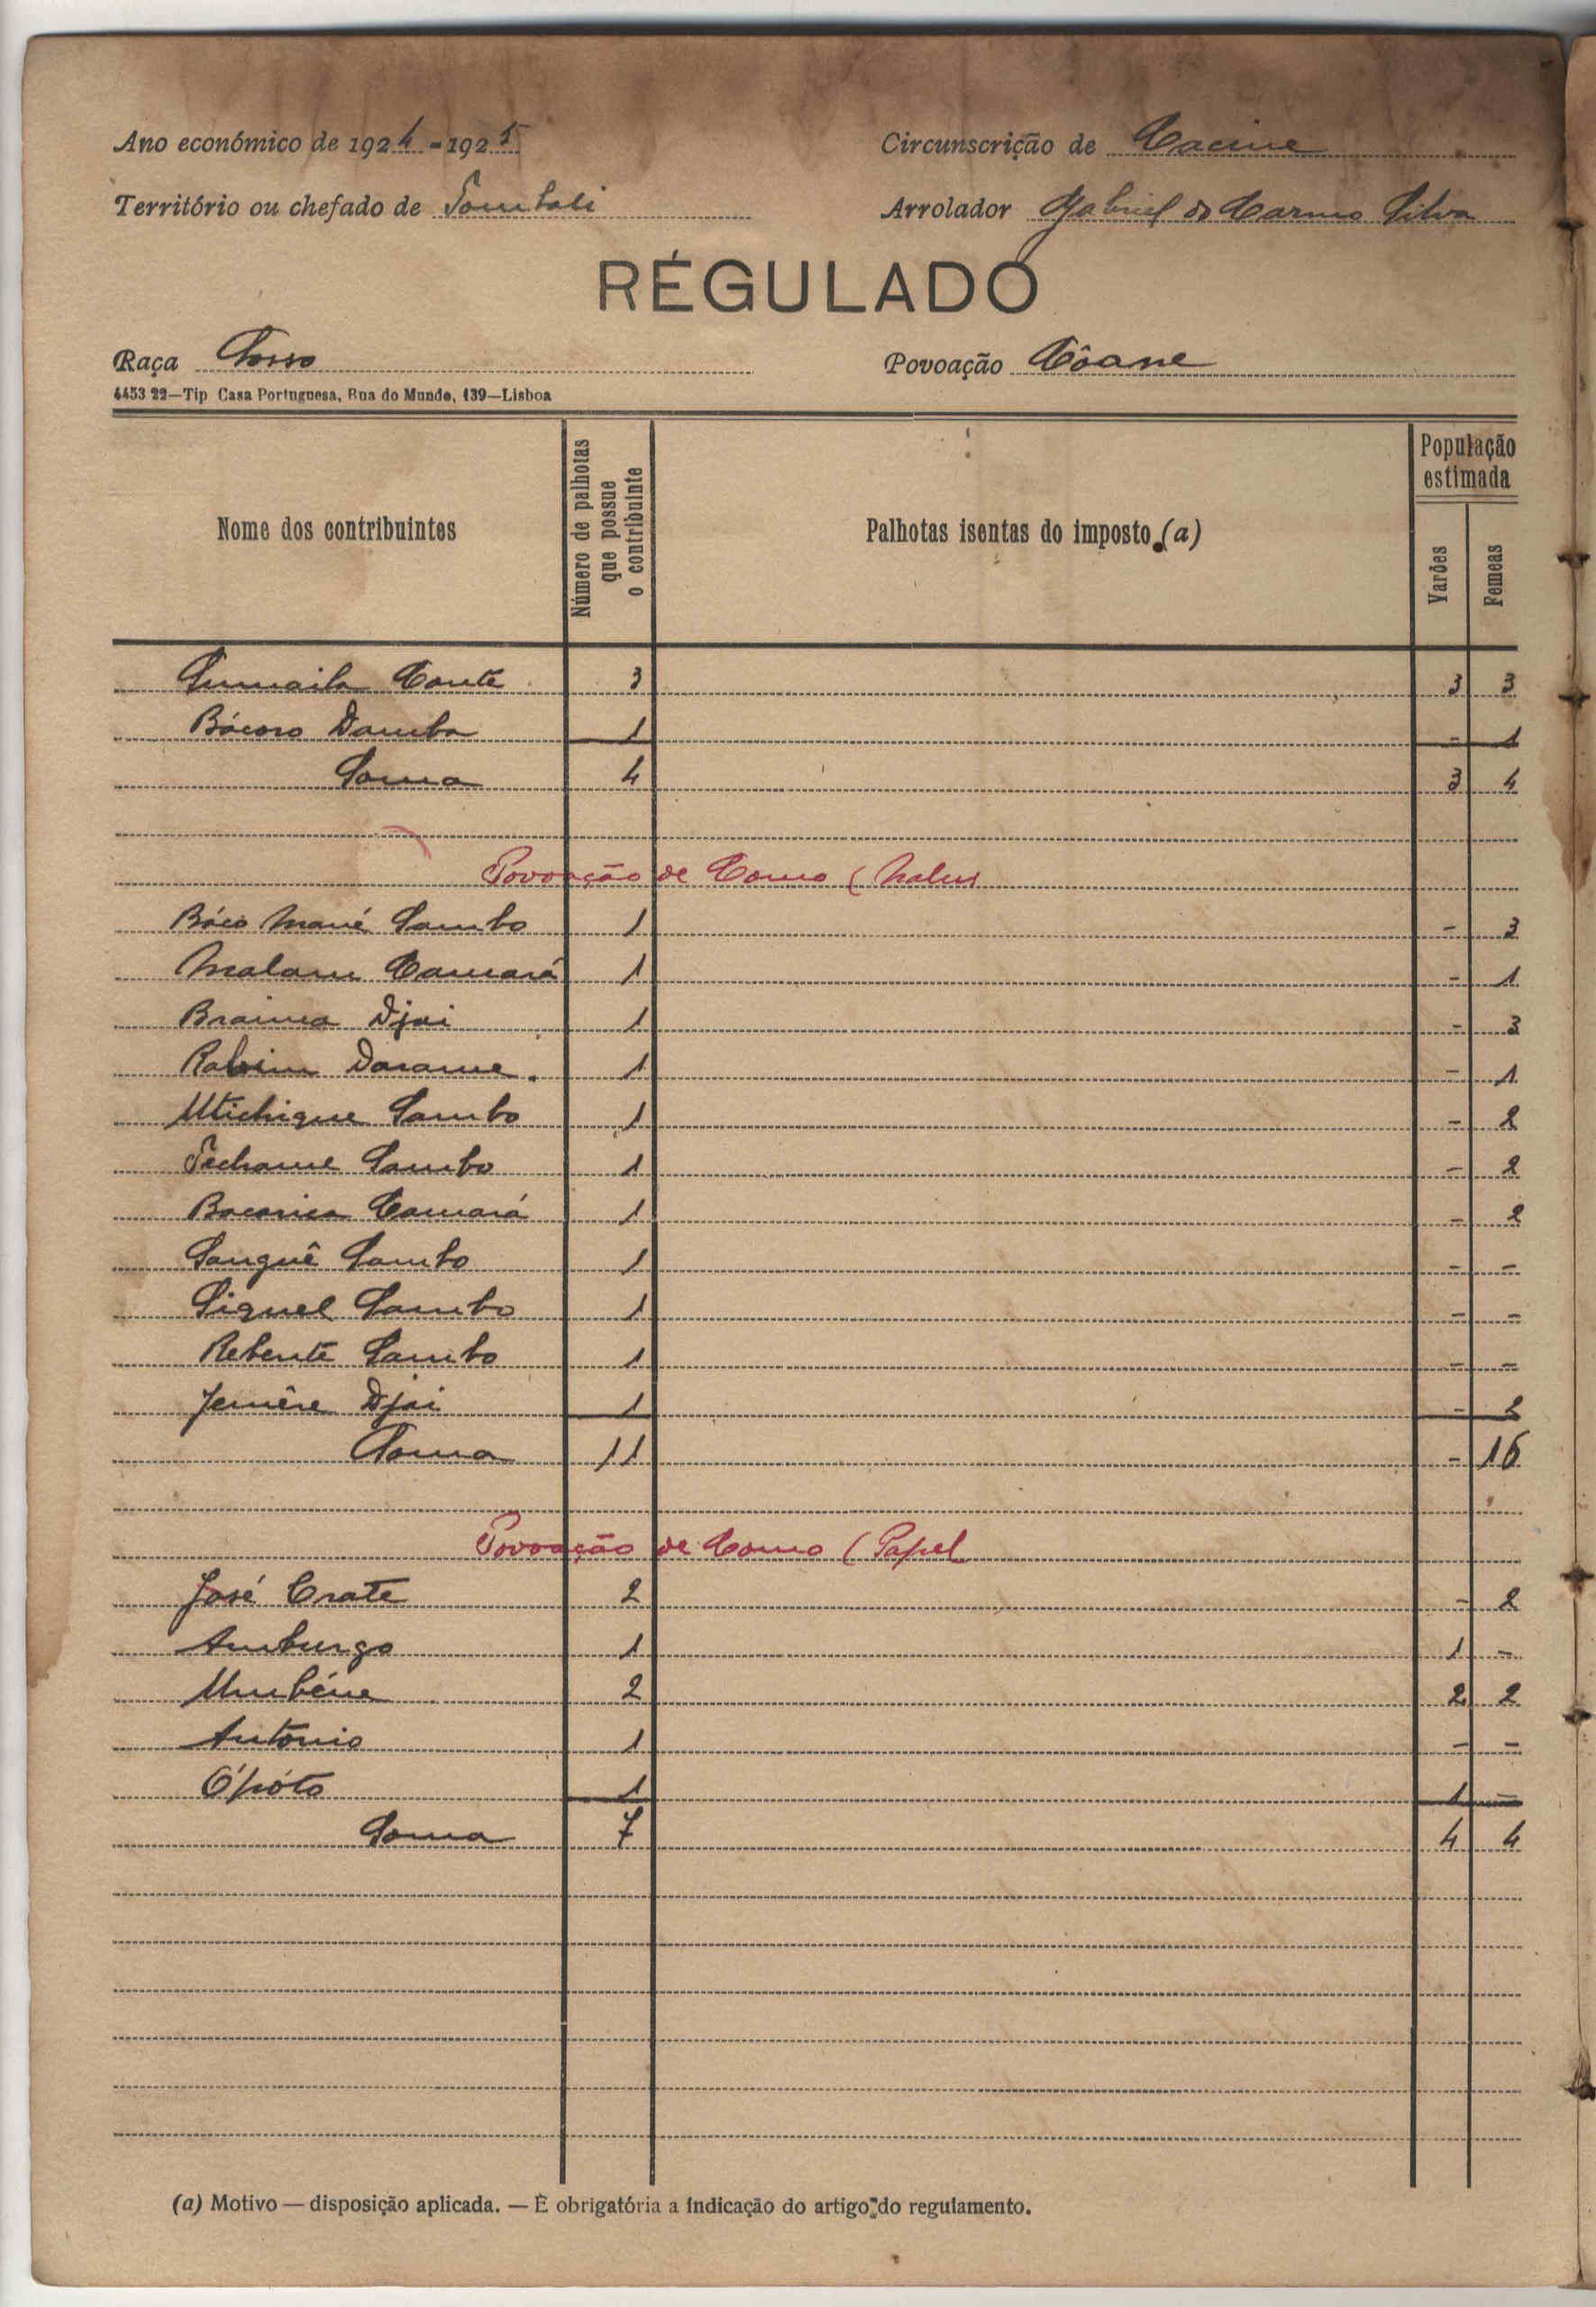 Ano económico de 1924-1925
Circunscrição de Cacine
Território ou chefado de Tombali
Arrolador Gabriel do Carmo Silva
RÉGULADO
Raça Sosso
Povoação Côane
4453 22—Tip Casa Portuguesa, Rua do Mundo, 139—Lisboa
Nome dos contribuintes
Número de palhotas que possue o contribuinte
Palhotas isentas do imposto (a)
População estimada
Varões
Femeas
Sumaila Conté 3 3 3
Bócoro Damba 1 - 1
Soma 4 3 4
Povoação de Como (Nalus
Bóco Mané Sambo 1 - 3
Malam Camará 1 - 1
Braima Djai 1 - 3
Rahim Darame. 1 - 1
Utichique Sambo 1 - 2
Techame Sambo 1 - 2
Bacarica Camará 1 - 2
Sanguê Sambo 1 - -
Siquel Sambo 1 - -
Rebenté Sambo 1 - -
Jemêre Djai 1 -
Soma 11 - 16
Povoação de Como (Papel
José Crate 2 - 2
Amburgo 1 1 -
Umbéne 2 2 2
António 1 - -
Ópóto 1 1 -
Soma 7 4 4
(a) Motivo — disposição aplicada. — È obrigatória a indicação do artigo do regulamento.